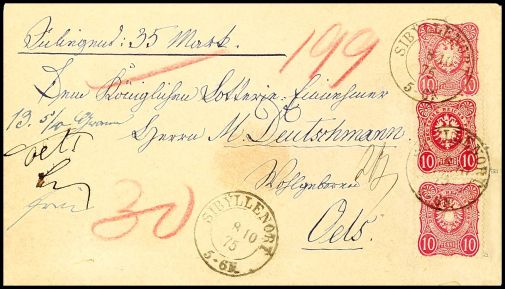 Inliegend: 35 Mark.
199
Dem Königlichen Lotterie-Einnehmer
Herrn M. Deutschmann.
Wohlgeboren
Oels.
30
SIBYLLENORT
8 10
75
5-6N.
SIBYLLENORT
8 10
75
10
10
10